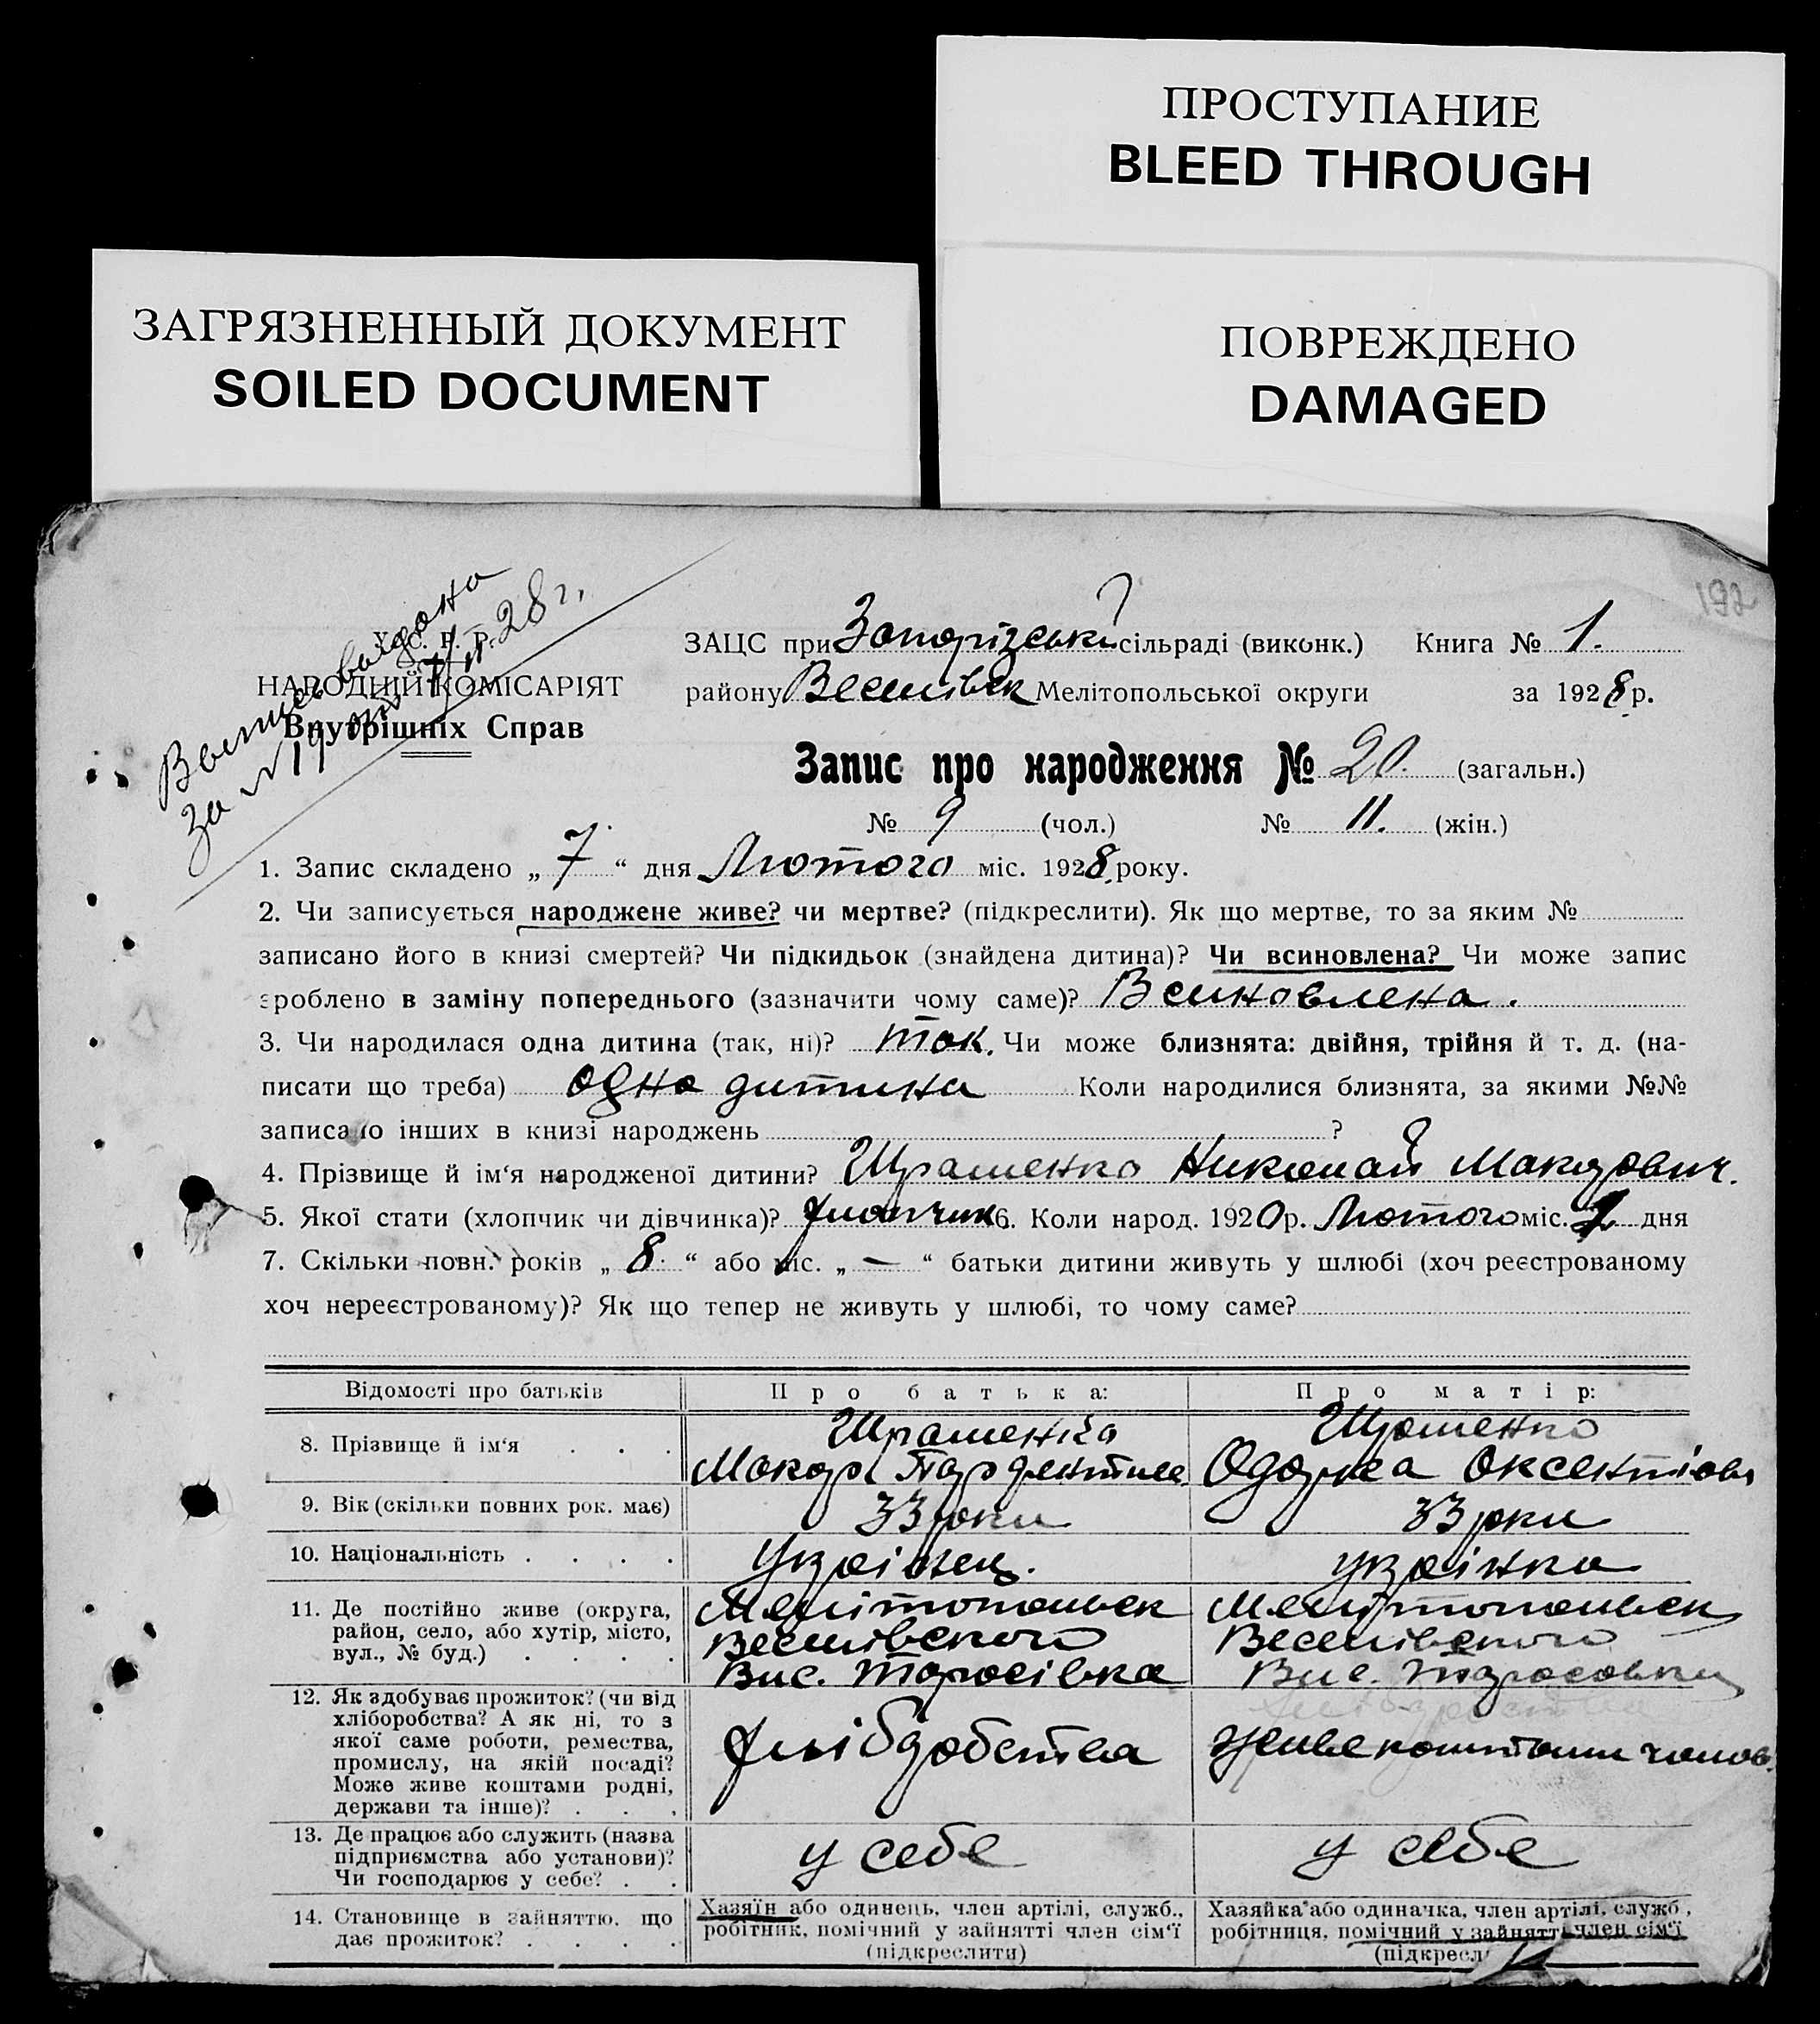 ПРОСТУПАНИЕ
BLEED THROUGH
ЗАГРЯЗНЕННЫЙ ДОКУМЕНТ
SOILED DOCUMENT
ПОВРЕЖДЕНО
DAMAGED
192
Выпись выдана
за № 19 от 7/II 28 г.
У. С. Р. Р.
НАРОДНІЙ КОМІСАРІЯТ
Внутрішніх Справ
ЗАЦС при Запорізській сільраді (виконк.) Книга № 1.
району Веселівськ Мелітопольської округи за 1928 р.
Запис про народження № 20. (загальн.)
№ 9 (чол.) № 11. (жін.)
1. Запис складено „ 7 “ дня Лютого міс. 1928 року.
2. Чи записується народжене живе? чи мертве? (підкреслити). Як що мертве, то за яким №
записано його в книзі смертей? Чи підкидьок (знайдена дитина)? Чи всиновлена? Чи може запис
зроблено в заміну попереднього (зазначити чому саме)? Всиновлена.
3. Чи народилася одна дитина (так, ні)? так. Чи може близнята: двійня, трійня й т. д. (на-
писати що треба) одна дитина Коли народилися близнята, за якими №№
записано інших в книзі народжень ?
4. Прізвище й ім‘я народженої дитини? Николай Макарович.
5. Якої стати (хлопчик чи дівчинка)? хлопчик 6. Коли народ. 1920 р. Лютого міс. 2 дня
7. Скільки повн. років „ 8 “ або міс. „ — “ батьки дитини живуть у шлюбі (хоч реєстрованому
хоч нереєстрованому)? Як що тепер не живуть у шлюбі, то чому саме?
Відомості про батьків Про батька: Про матір:
8. Прізвище й ім‘я
Макар
9. Вік (скільки повних рок. має) 33 роки 33 роки
10. Національність українець. українка
11. Де постійно живе (округа,
район, село, або хутір, місто,
вул., № буд.)
Мелітопольськ
Веселівського
Вис. Тарасівка
Мелітопольськ
Веселівського
Вис. Тарасовка
12. Як здобуває прожиток? (чи від
хліборобства? А як ні, то з
якої саме роботи, ремества,
промислу, на якій посаді?
Може живе коштами родні,
держави та інше)?
хліборобства
живе коштами чолов.
13. Де працює або служить (назва
підприємства або установи)?
Чи господарює у себе?
у себе
у себе
14. Становище в зайняттю, що
дає прожиток?
Хазяїн або одинець, член артілі, служб.,
робітник, помічний у зайнятті член сім‘ї
(підкреслити)
Хазяйка або одиначка, член артілі, служб.,
робітниця, помічний у зайнятті член сім‘ї
(підкресл